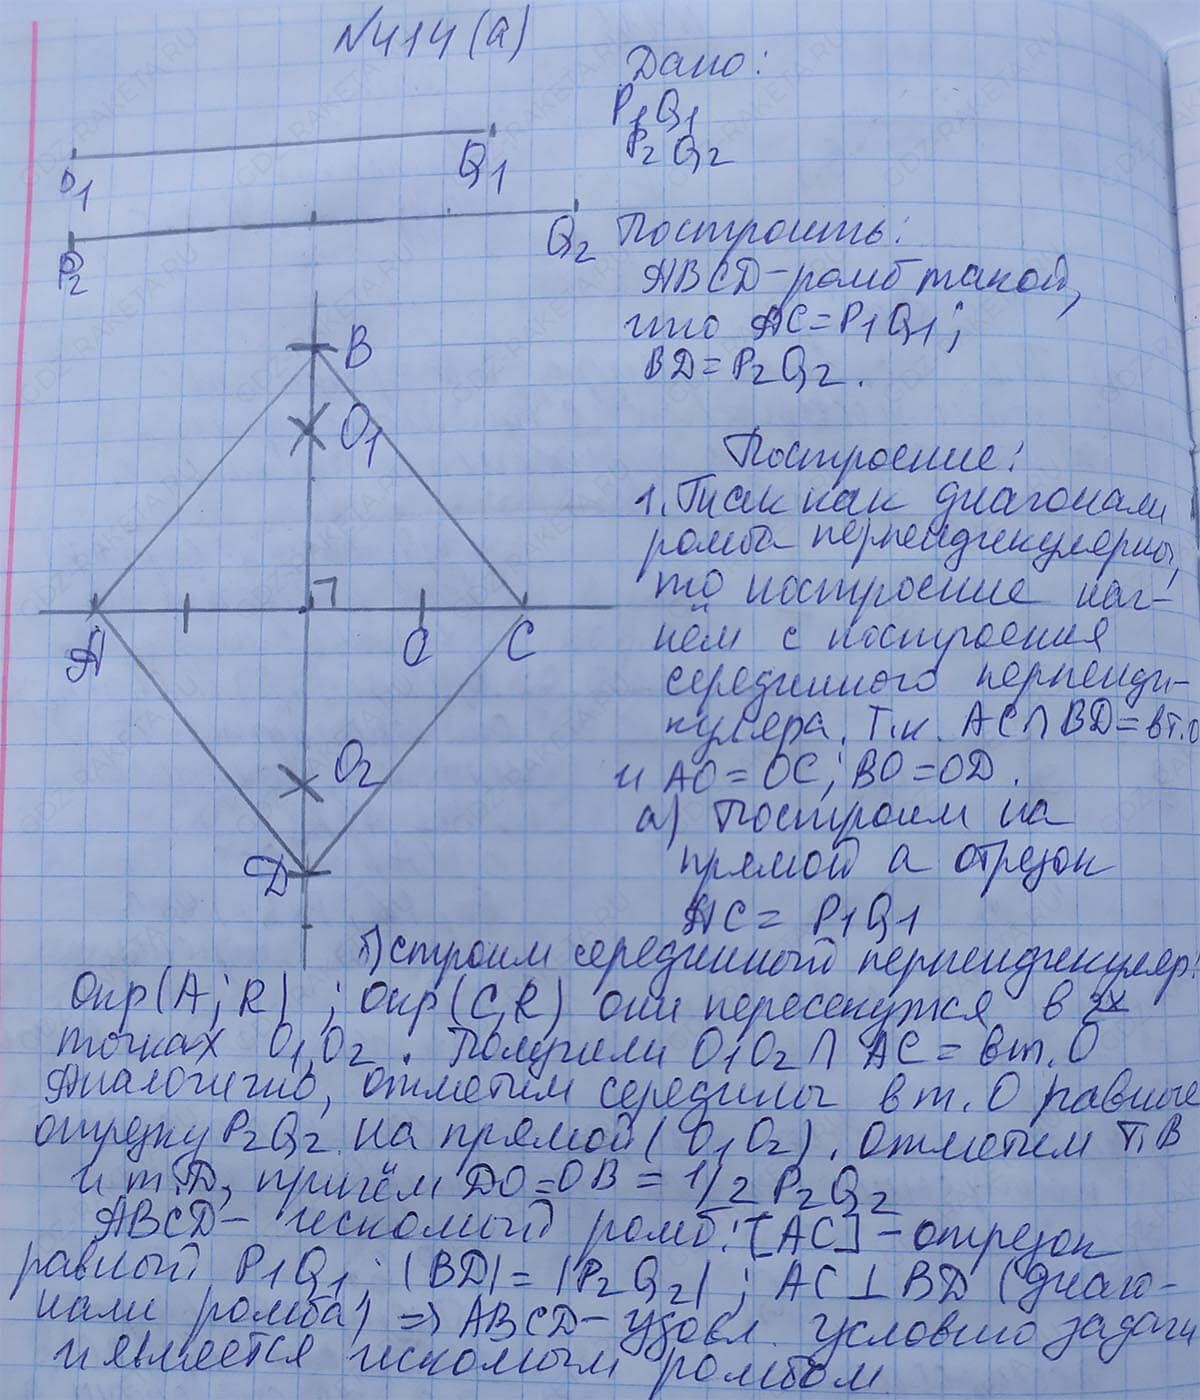 №414(а)
Дано:
P1Q1
P2Q2
P1
Q1
P2
Q2
Построить:
ABCD-ромб такой,
что AC=P1Q1;
BD=P2Q2.
B
O1
A
a
C
O2
D
Построение:
1. Так как диагонали
ромба перпендикулярны,
то построение нач-
нём с построения
серединного перпенди-
куляра. Т.к. AC∩BD=в т.О
и AO=OC; BO=OD.
а) Построим на
прямой а отрезок
AC= P1Q1
б) строим серединный перпендикуляр:
Окр(A;R) ; Окр(C,R) они пересекутся в 2х
точках O1,O2. Получили O1O2∩AC=в т.О
Аналогично, отметим середины в т.О равные
отрезку P2Q2 на прямой (O1O2). Отметим т.В
и т.D, причём DO=OB=1/2 P2Q2
ABCD- искомый ромб: [AC]-отрезок
равный P1Q1; |BD|=|P2Q2|; AC⊥BD (диаго-
нали ромба) => ABCD-удовл. условию задачи
и является искомым ромбом